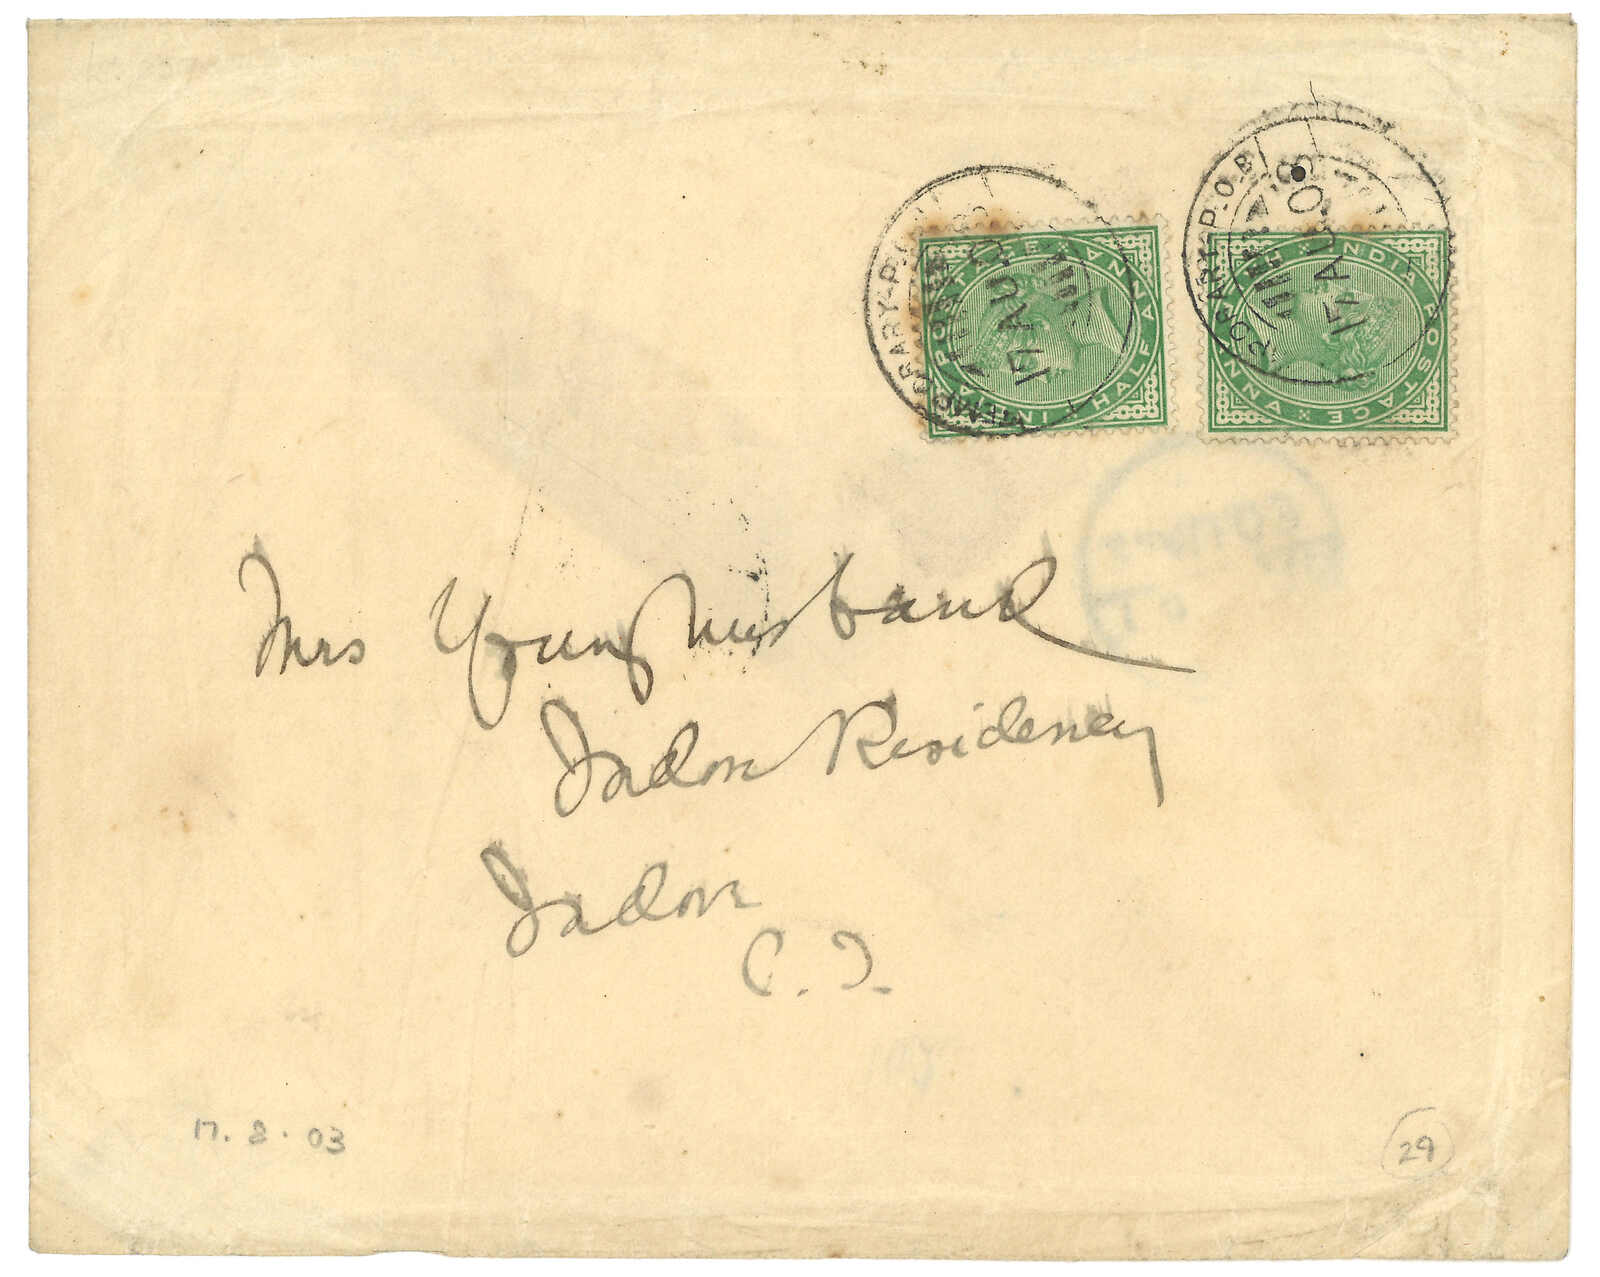 TEMPORARY-P.O.
17 AU 03
INDIA POSTAGE
HALF ANNA
TEMPORARY-P.O.B
17 AU 03
INDIA POSTAGE
ANNA
Mrs Younghusband
Indore Residency
Indore
C. I.
17. 8. 03
29